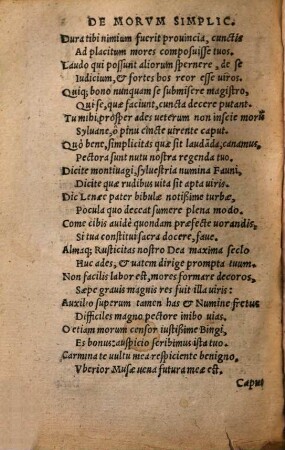 DE MORVM SIMPLIC.
Dura tibi nimium fuerit prouincia, cunctis
Ad placitum mores composuisse tuos.
Laudo qui possunt aliorum spernere, de se
Iudicium, & fortes bos reor esse uiros.
Quiq; bono nunquam se submisere magistro,
Qui se, quæ faciunt, cuncta decere putant.
Tu mihi prosper ades ueterum non inscie morū
Syluane, ô pinu cincte uirente caput.
Quò bene, simplicitas quæ sit laudāda, canamus,
Pectora sunt nutu nostra regenda tuo.
Dicite montiuagi, syluestria numina Fauni,
Dicite quæ rudibus uita sit apta uiris.
Dic Lenæe pater bibulæ notißime turbæ,
Pocula quo deceat sumere plena modo.
Come cibis auidè quondam præfecte uorandis,
Si tua constitui sacra docere, faue.
Almaq; Rusticitas nostro Dea maxima seclo
Huc ades, & uatem dirige prompta tuum.
Non facilis labor est, mores formare decoros,
Sæpe grauis magnis res fuit illa uiris:
Auxilio superum tamen has & Numine fretus
Difficiles magno pectore inibo uias.
O etiam morum censor iustißime Bingi,
Es bonus: auspicio scribimus ista tuo.
Carmina te uultu mea respiciente benigno,
Vberior Musæ uena futura meæ est.
Caput